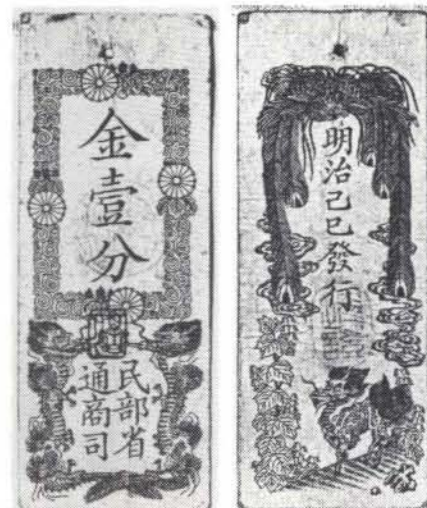 金壹分
民部省
通商司
明治己巳發行